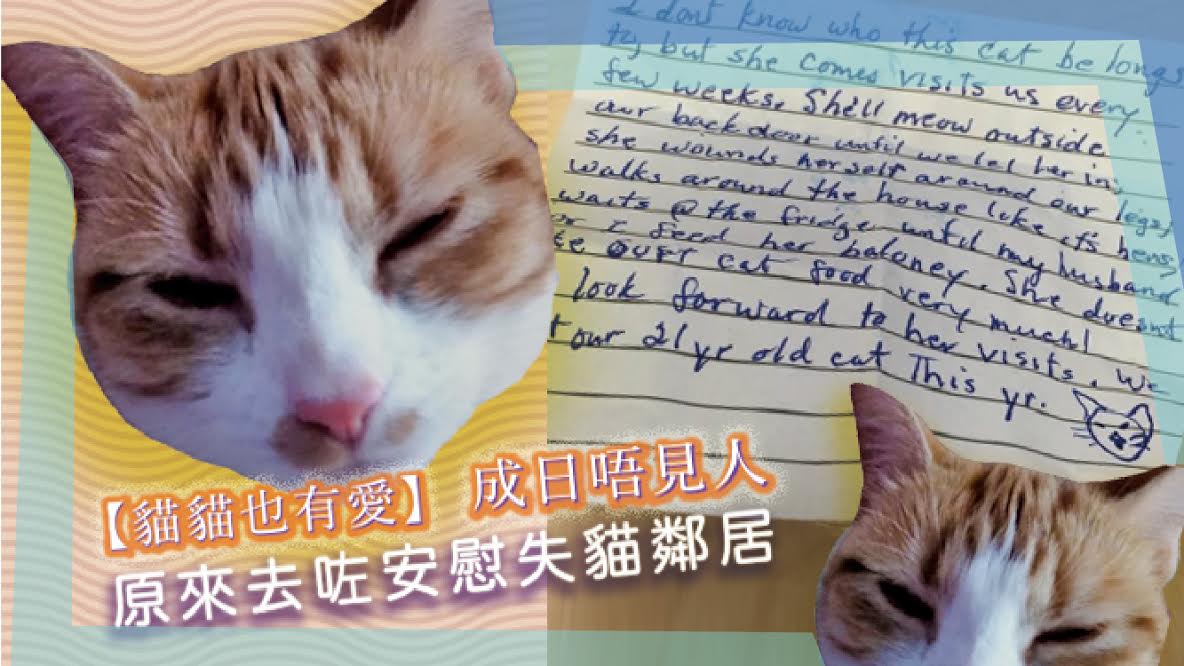 I dont know who this cat belongs
to, but she comes visits us every
few weeks. She'll meow outside
our backdoor until we let her in,
she wounds herself around our legs,
walks around the house like it's hers,
waits @ the fridge until my husband
or I feed her baloney. She doesnt
our cat food very much!
look forward to her visits. We
our 21 yr old cat This yr.
【貓貓也有愛】 成日唔見人
原來去咗安慰失貓鄰居